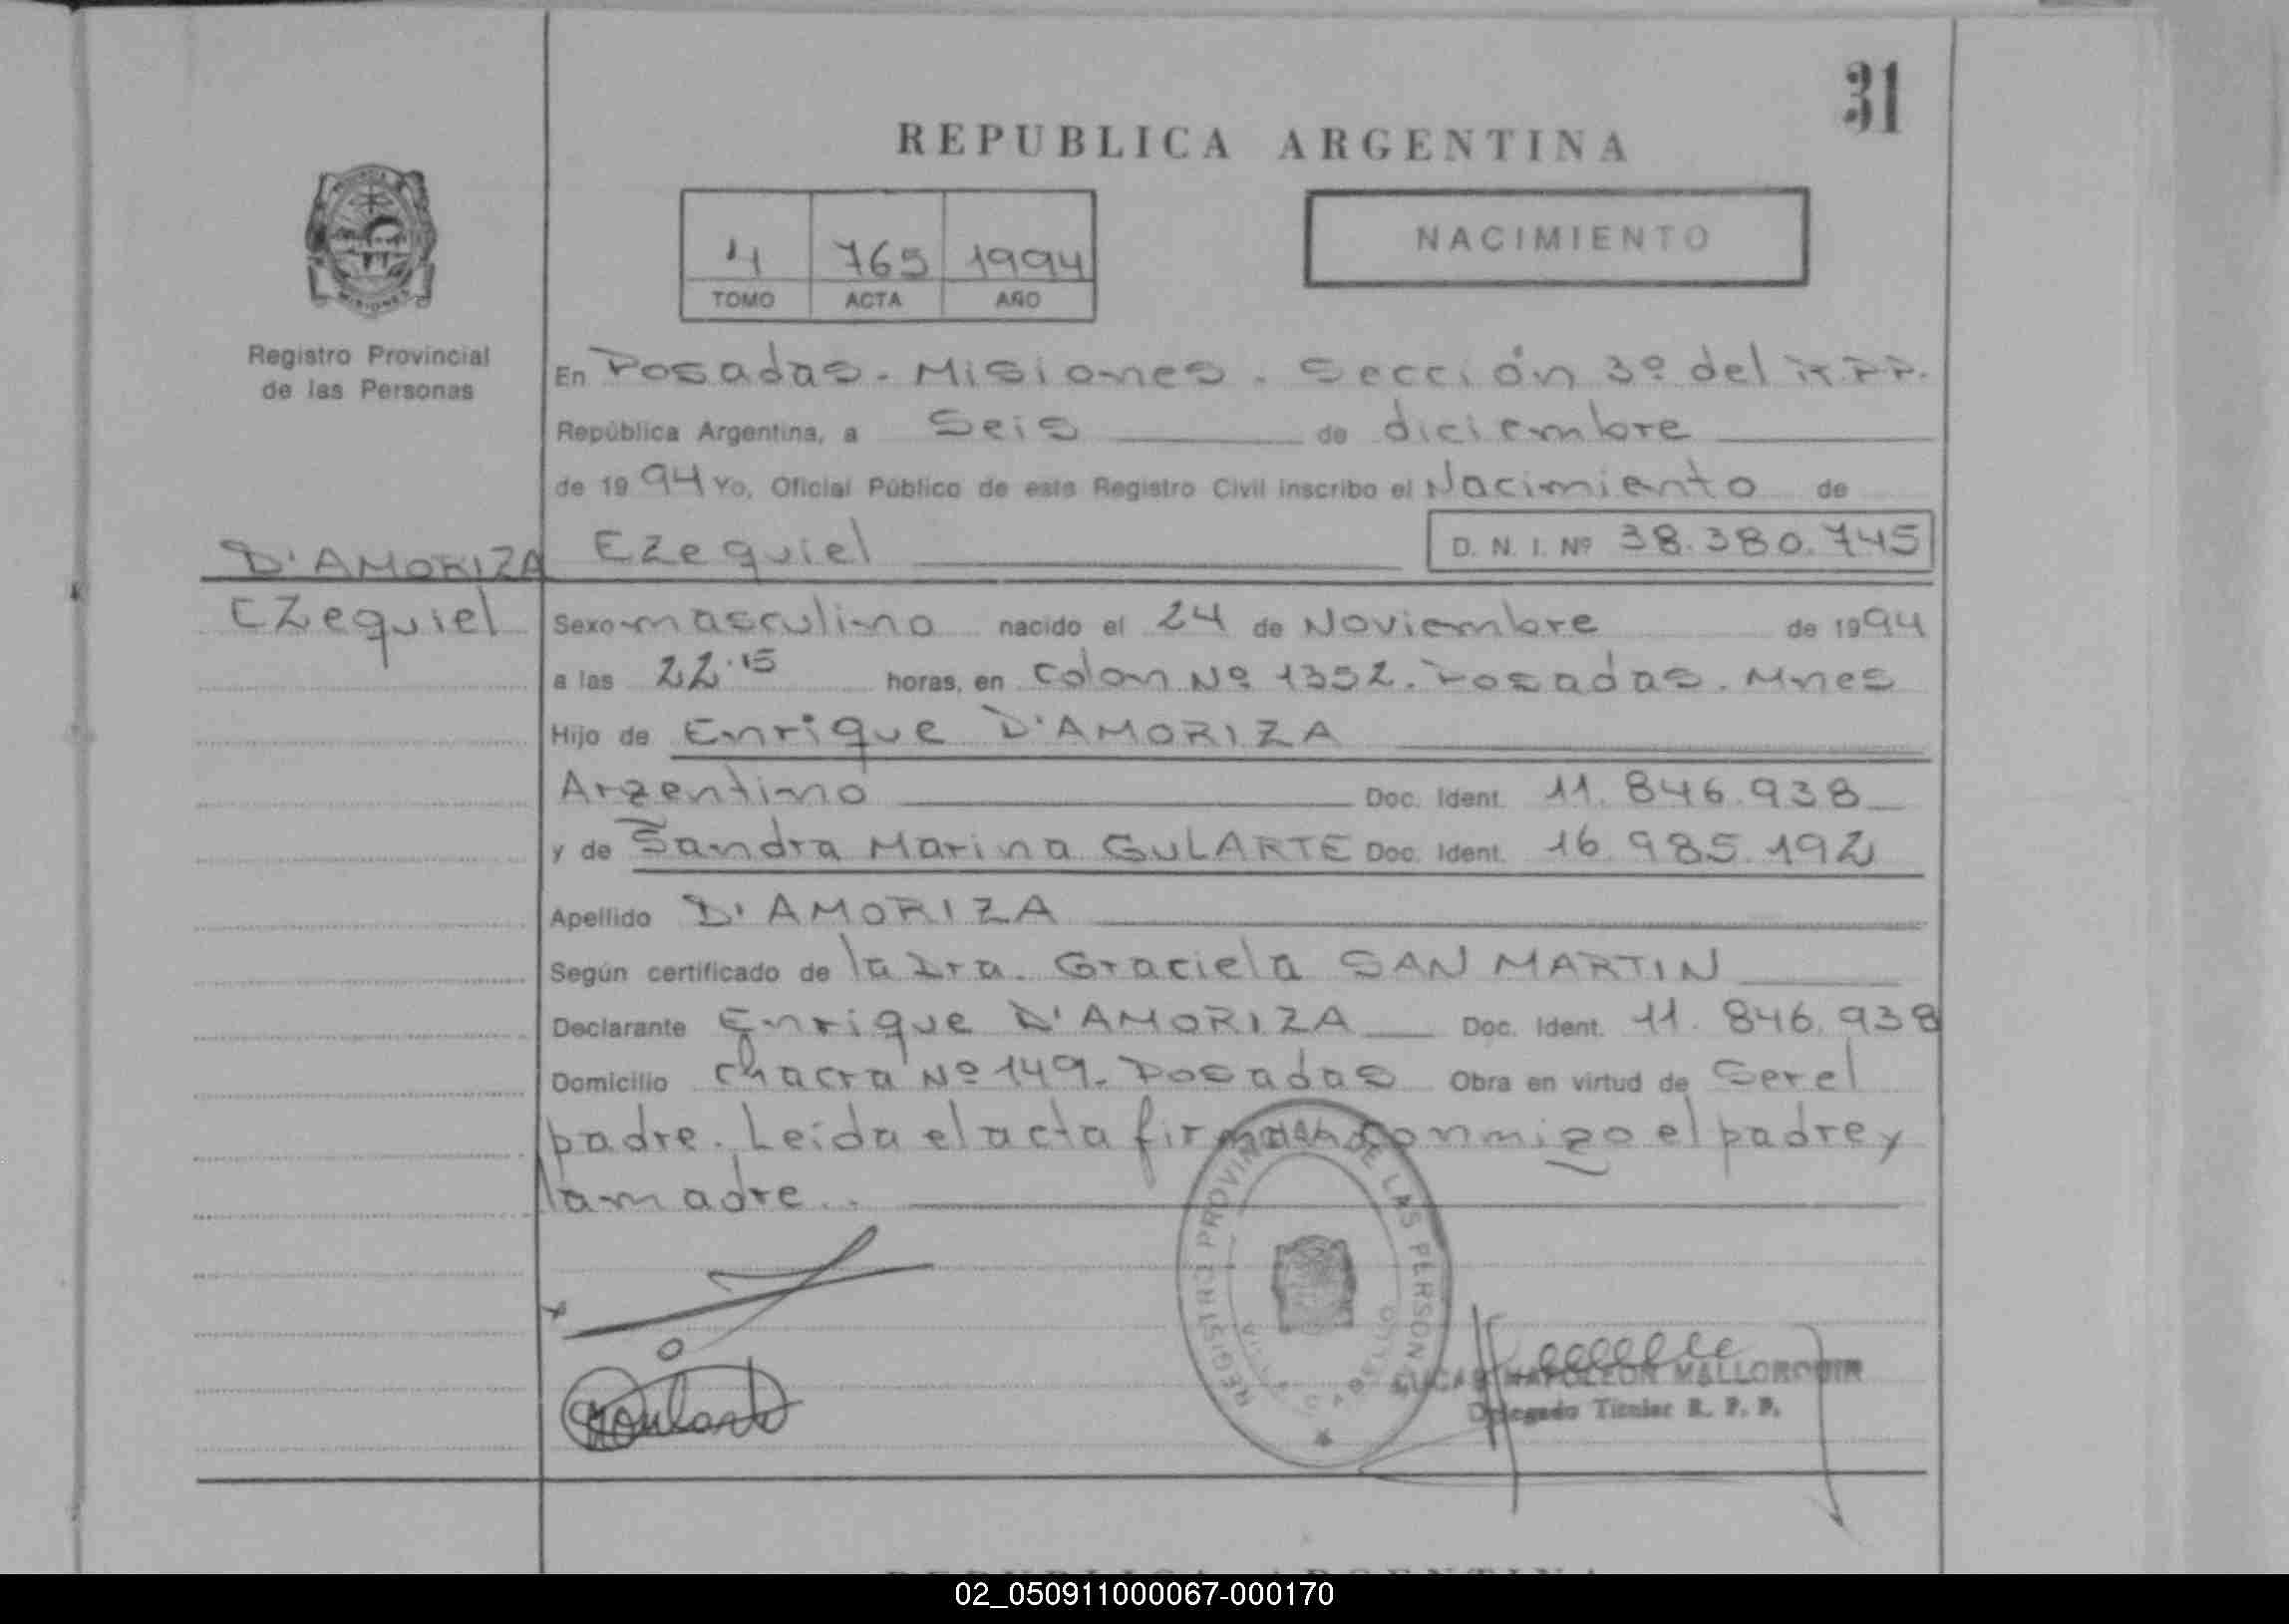 31
REPUBLICA ARGENTINA
4 765 1994
TOMO ACTA AÑO
NACIMIENTO
Registro Provincial
de las Personas
En Posadas - Misiones - Sección 3º del R.P.P.
República Argentina, a Seis de diciembre
de 1994 Yo, Oficial Público de este Registro Civil inscribo el Nacimiento de
D'AMORIZA Ezequiel
D. N. I. Nº 38.380.745
Ezequiel
Sexo masculino nacido el 24 de Noviembre de 1994
a las 22.15 horas, en Colon Nº 1352. Posadas. Mnes
Hijo de Enrique D'AMORIZA
Argentino Doc. Ident. 11.846.938
y de Sandra Marina GULARTE Doc. Ident. 16.985.192
Apellido D'AMORIZA
Según certificado de la Dra. Graciela SAN MARTIN
Declarante Enrique D'AMORIZA Doc. Ident. 11.846.938
Domicilio Chacra Nº 149. Posadas Obra en virtud de Ser el
padre. Leída el acta firman conmigo el padre y
la madre..
REGISTRO PROVINCIAL DE LAS PERSONAS
LUCAS NAPOLEON MALLORQUIN
Delegado Titular R. P. P.
REPUBLICA ARGENTINA
02_050911000067-000170